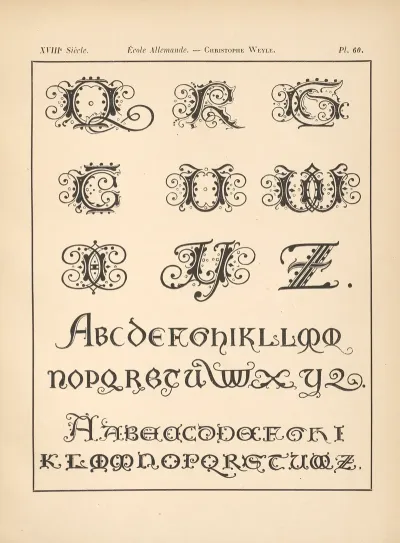 XVIIIᵉ Siècle. École Allemande. — Christophe Weyle. Pl. 60.
Q R S
T U W
X Y Z.
ABCDEFGHIKLLMM
NOPQRSTUVWXYZ.
AABCCCDDEFGHI
KLMMNOPQRSTUWZ.